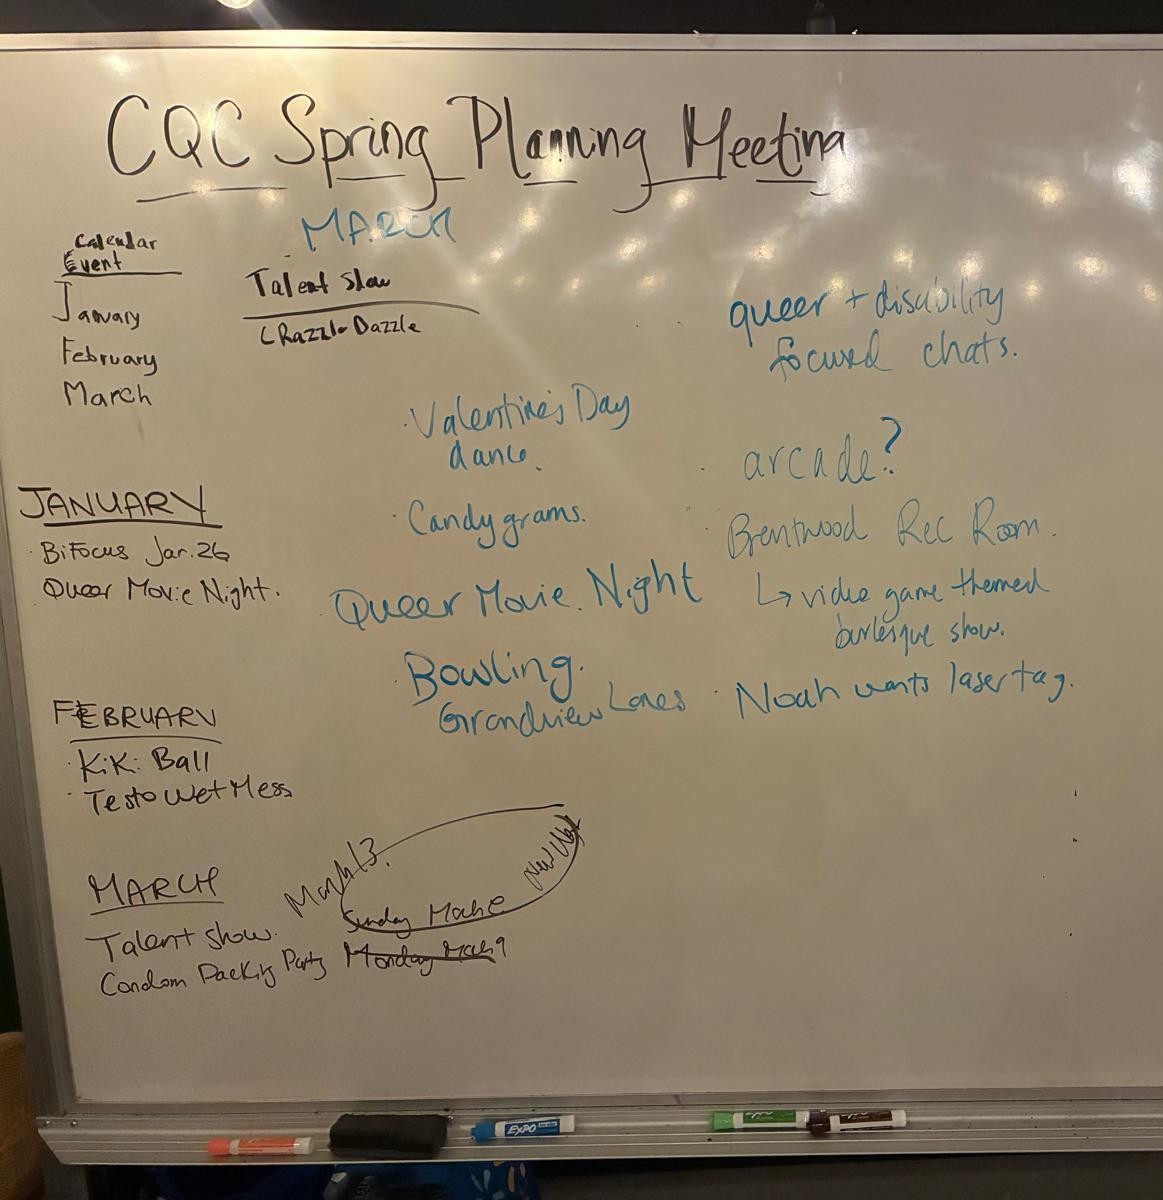 CQC Spring Planning Meeting
Calendar
Event
January
February
March
MARCH
Talent Show
Razzle Dazzle
queer + disability
focused chats.
· Valentine's Day
dance.
· Candygrams.
Queer Movie Night
· Bowling.
Grandview Lanes
· arcade?
· Brentwood Rec Room.
↳ video game themed
burlesque show.
· Noah wants laser tag.
JANUARY
· BiFocus Jan. 26
Queer Movie Night.
FEBRUARY
· Kiki Ball
· Testo Wet Mess
MARCH
Talent show.
March 13.
Sunday
Condom Packing Party Monday
EXPO